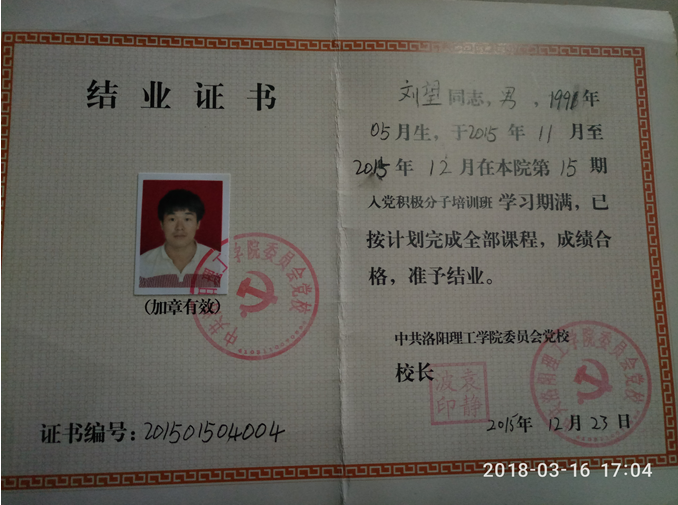 结业证书
(加章有效)
中共洛阳理工学院委员会党校
证书编号:201501504004
刘望同志,男,1991年
05月生,于2015年11月至
2015年12月在本院第15期
入党积极分子培训班学习期满,已
按计划完成全部课程,成绩合
格,准予结业。
中共洛阳理工学院委员会党校
校长
袁静波印
中共洛阳理工学院委员会党校
2015年12月23日
2018-03-16 17:04